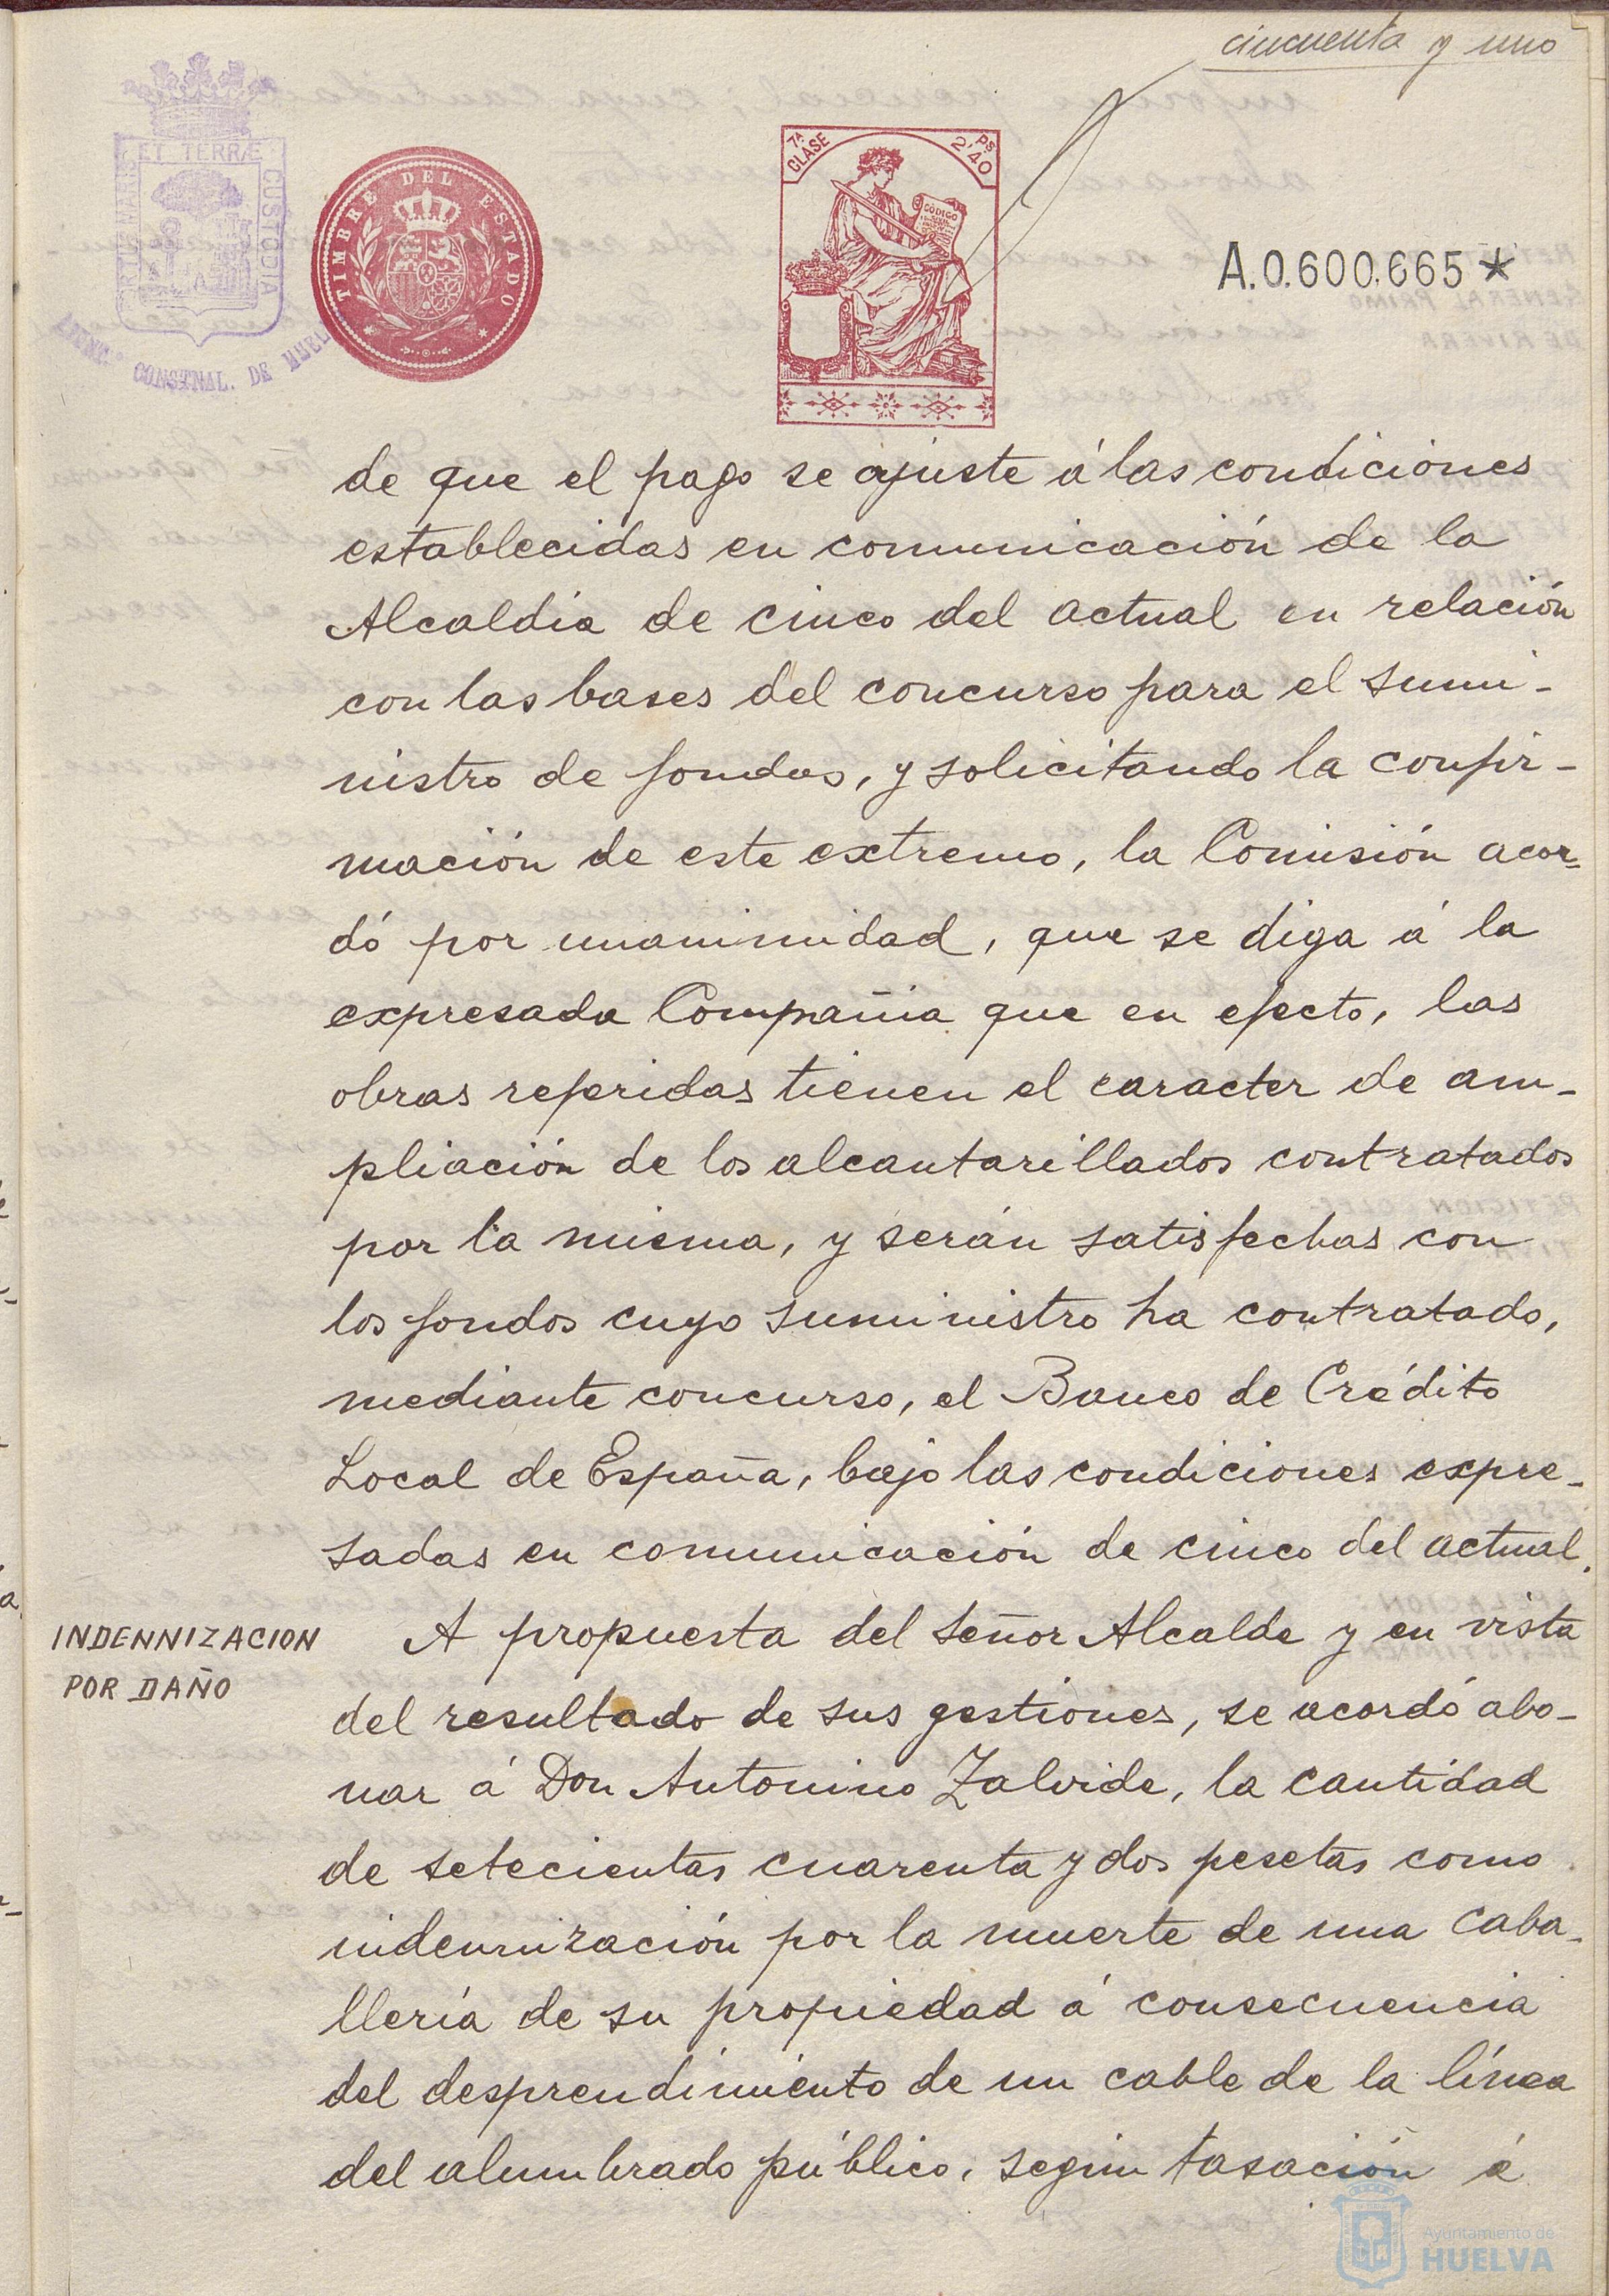 cincuenta y uno
ET TERRÆ
CUSTODIA
CONSTNAL. DE HUEL
TIMBRE DEL ESTADO
7ª CLASE
Ps 2'40
CODIGO
A.0.600.665*
de que el pago se ajuste á las condiciones
establecidas en comunicación de la
Alcaldía de cinco del actual en relación
con las bases del concurso para el sumi-
nistro de fondos, y solicitando la confir-
mación de este extremo, la Comisión acor=
dó por unanimidad, que se diga á la
expresada Compañia que en efecto, las
obras referidas tienen el caracter de am-
pliación de los alcantarillados contratados
por la misma, y serán satisfechas con
los fondos cuyo suministro ha contratado,
mediante concurso, el Banco de Crédito
Local de España, bajo las condiciones expre-
sadas en comunicación de cinco del actual.
INDENNIZACION
POR DAÑO
A propuesta del Señor Alcalde y en vista
del resultado de sus gestiones, se acordó abo-
nar á Don Antonino Zalvide, la cantidad
de setecientas cuarenta y dos pesetas como
indemnización por la muerte de una caba-
llería de su propiedad á consecuencia
del desprendimiento de un cable de la línea
del alumbrado público, según tasación á
Ayuntamiento de
HUELVA